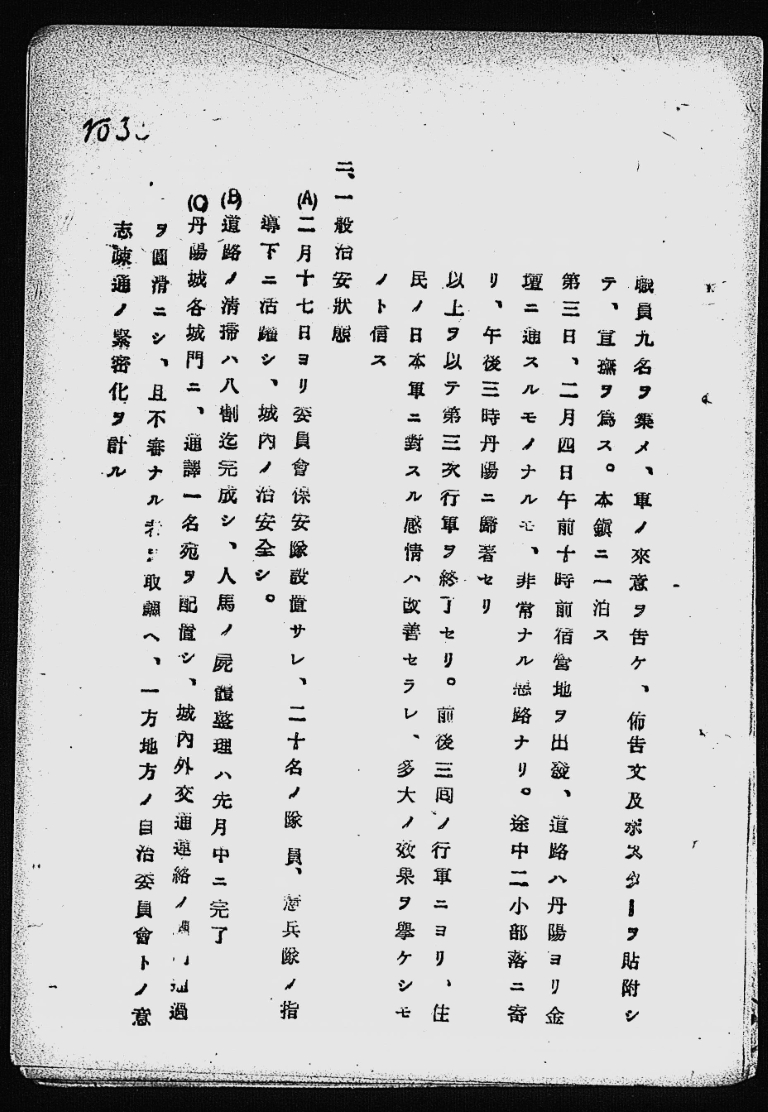 職員九名ヲ集メ、軍ノ來意ヲ告ケ、佈告文及ポスターヲ貼附シ
テ、宣撫ヲ爲ス。本鎭ニ一泊ス
第三日、二月四日午前十時前宿營地ヲ出發、道路ハ丹陽ヨリ金
壇ニ通スルモノナルモ、非常ナル惡路ナリ。途中二小部落ニ寄
リ、午後三時丹陽ニ歸著セリ
以上ヲ以テ第三次行軍ヲ終了セリ。前後三囘ノ行軍ニヨリ、住
民ノ日本軍ニ對スル感情ハ改善セラレ、多大ノ效果ヲ擧ケシモ
ノト信ス
二、一般治安狀態
(A)二月十七日ヨリ委員會保安隊設置サレ、二十名ノ隊員、憲兵隊ノ指
導下ニ活躍シ、城內ノ治安全シ。
(B)道路ノ清掃ハ八割迄完成シ、人馬ノ屍體整理ハ先月中ニ完了
(C)丹陽城各城門ニ、通譯一名宛ヲ配置シ、城內外交通連絡ノ通過
ヲ圓滑ニシ、且不審ナル者ヲ取調ヘ、一方地方ノ自治委員會トノ意
志疎通ノ緊密化ヲ計ル
No 3